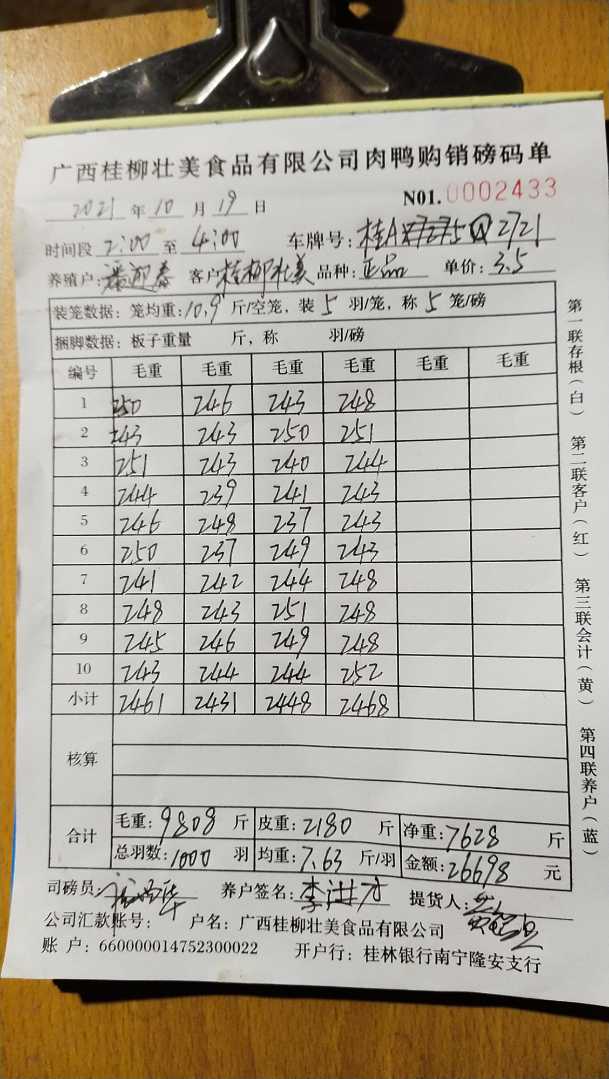 广西桂柳壮美食品有限公司肉鸭购销磅码单
2021 年 10 月 19 日 NO1.0002433
时间段 2:00 至 4:00 车牌号: 桂A 2721
养殖户: 客户 桂柳壮美 品种: 正品 单价: 3.5
装笼数据: 笼均重: 10.9 斤/空笼, 装 5 羽/笼, 称 5 笼/磅
捆脚数据: 板子重量 斤, 称 羽/磅
编号 毛重 毛重 毛重 毛重 毛重 毛重
1 250 246 243 248
2 243 243 250 251
3 251 243 240 244
4 244 239 241 243
5 246 248 237 243
6 250 237 249 243
7 241 242 244 248
8 248 243 251 248
9 245 246 249 248
10 243 244 244 252
小计 2461 2431 2448 2468
核算
合计 毛重: 9808 斤 皮重: 2180 斤 净重: 7628 斤
总羽数: 1000 羽 均重: 7.63 斤/羽 金额: 26698 元
司磅员: 养户签名: 提货人:
公司汇款账号: 户名: 广西桂柳壮美食品有限公司
账 户: 660000014752300022 开户行: 桂林银行南宁隆安支行
第一联存根(白) 第二联客户(红) 第三联会计(黄) 第四联养户(蓝)